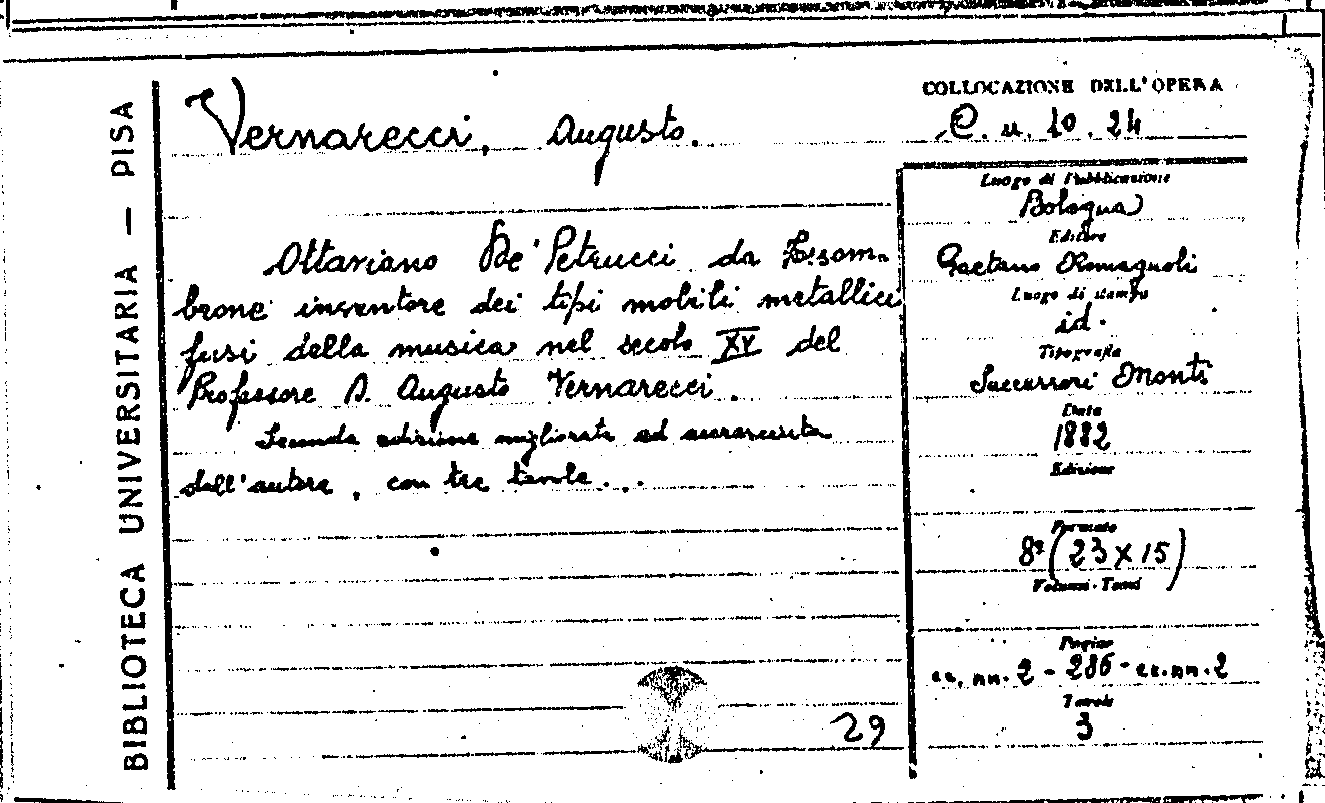 BIBLIOTECA UNIVERSITARIA — PISA
Vernarecci, Augusto.
COLLOCAZIONE DELL'OPERA
C. u. 10. 24
Ottaviano De' Petrucci da Fossom-
brone inventore dei tipi mobili metallici
fusi della musica nel secolo XV del
Professore D. Augusto Vernarecci.
Seconda edizione migliorata ed accresciuta
dall'autore, con tre tavole...
29
Luogo di Pubblicazione
Bologna
Editore
Gaetano Romagnoli
Luogo di stampa
id.
Tipografia
Successori Monti
Data
1882
Edizione
Formato
8º (23 x 15)
Volumi - Tomi
Pagine
cc. nn. 2 - 286 - cc. nn. 2
Tavole
3